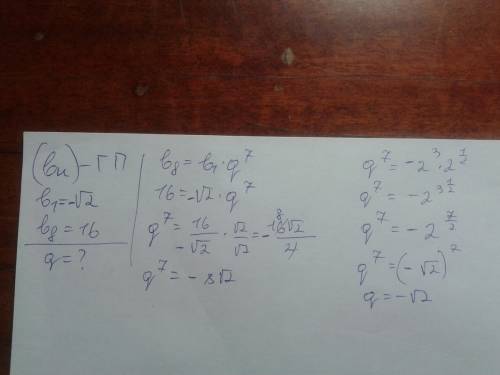 (bn) - ГП
b₁ = -√2
b₈ = 16
q = ?
b₈ = b₁ · q⁷
16 = -√2 · q⁷
q⁷ = 16/-√2 · √2/√2 = - 16√2/4 8
q⁷ = - 8√2
q⁷ = -2³ · 2^(1/2)
q⁷ = -2^(3 1/2)
q⁷ = -2^(7/2)
q⁷ = (-√2)⁷
q = -√2